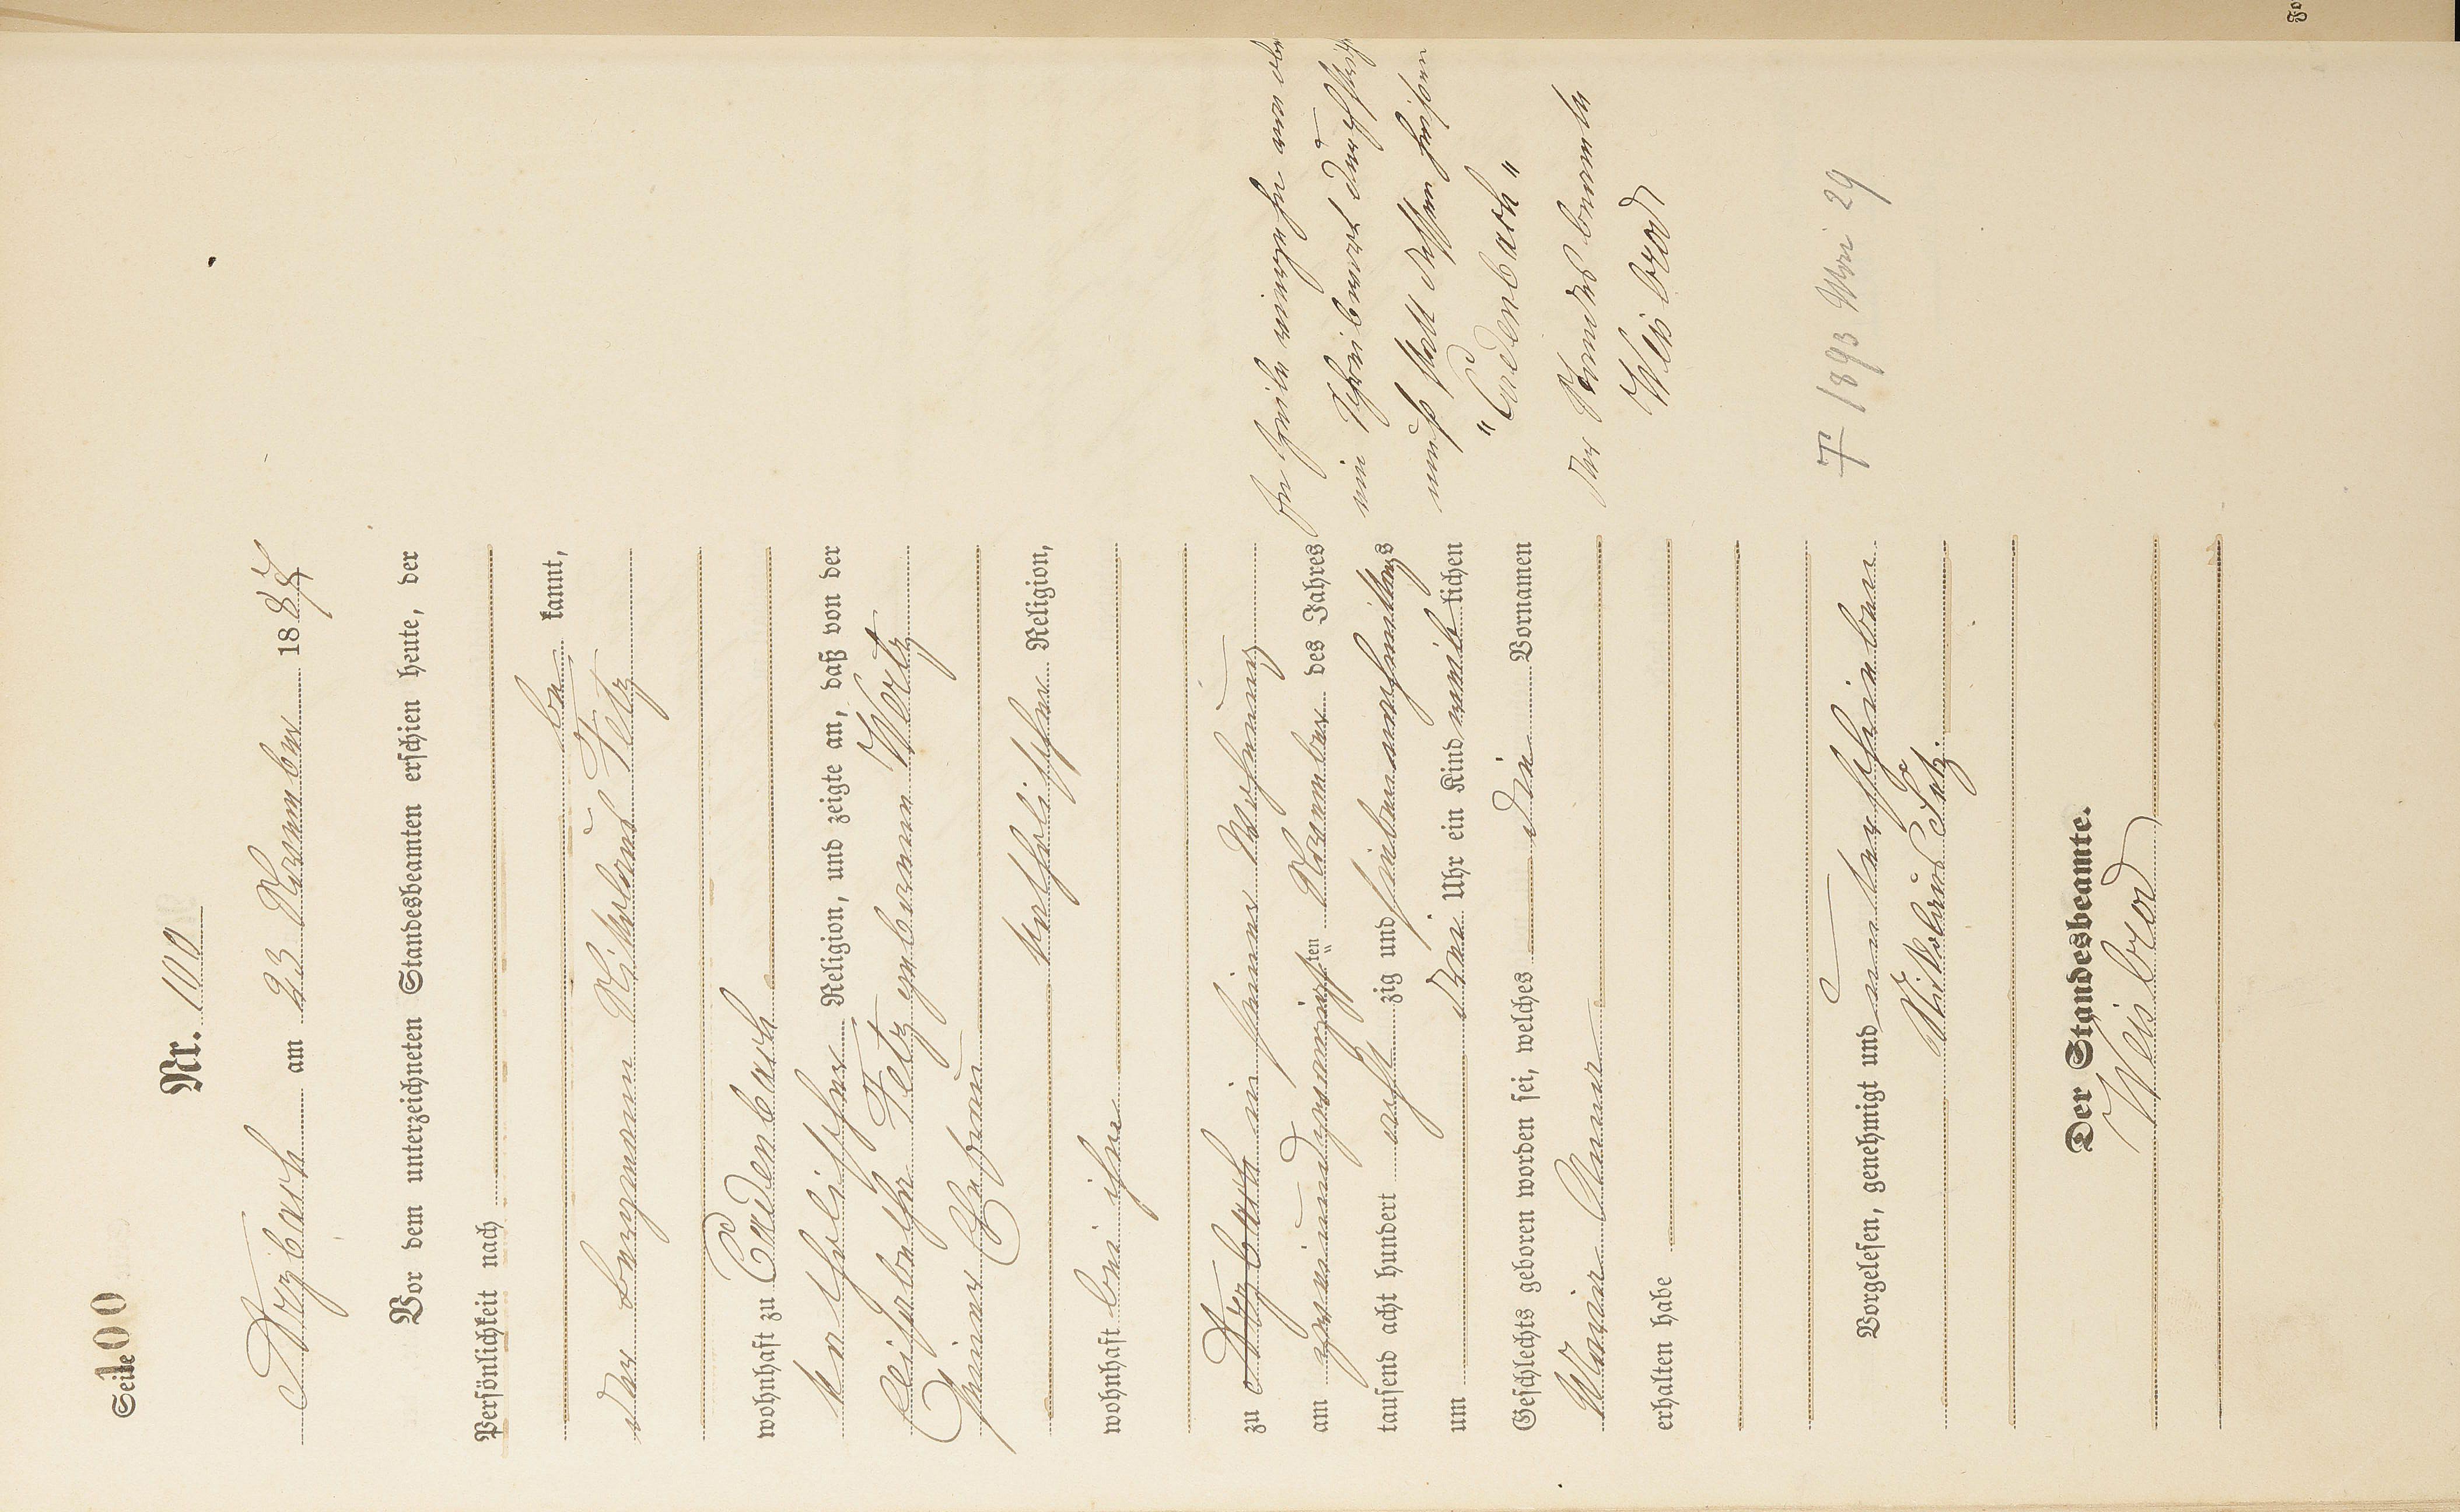 Seite 100
Nr. 100
Arzbach am 23 November 1887
Vor dem unterzeichneten Standesbeamten erschien heute, der
Persönlichkeit nach
be kannt,
der Bergmann Nikolaus Fetz
wohnhaft zu Cadenbach
katholischer Religion, und zeigte an, daß von der
Elisabetha Fetz geborenen Wertz
seiner Ehefrau
katholischer Religion,
wohnhaft bei ihm
zu Arzbach in seiner Wohnung
am zweiundzwanzigsten November des Jahres
tausend acht hundert acht zig und sieben nachmittags
um drei Uhr ein Kind weiblichen
Geschlechts geboren worden sei, welches die Vornamen
Maria Anna
erhalten habe
Vorgelesen, genehmigt und unterschrieben
Nikolaus Fetz.
Der Standesbeamte.
Weisbrod
In Zeile vierzehn von oben
ein Schreibwort durchstrich
muß statt dessen heißen
"Cadenbach"
Der Standesbeamte
Weisbrod
† 1893 Nr 29
Fo